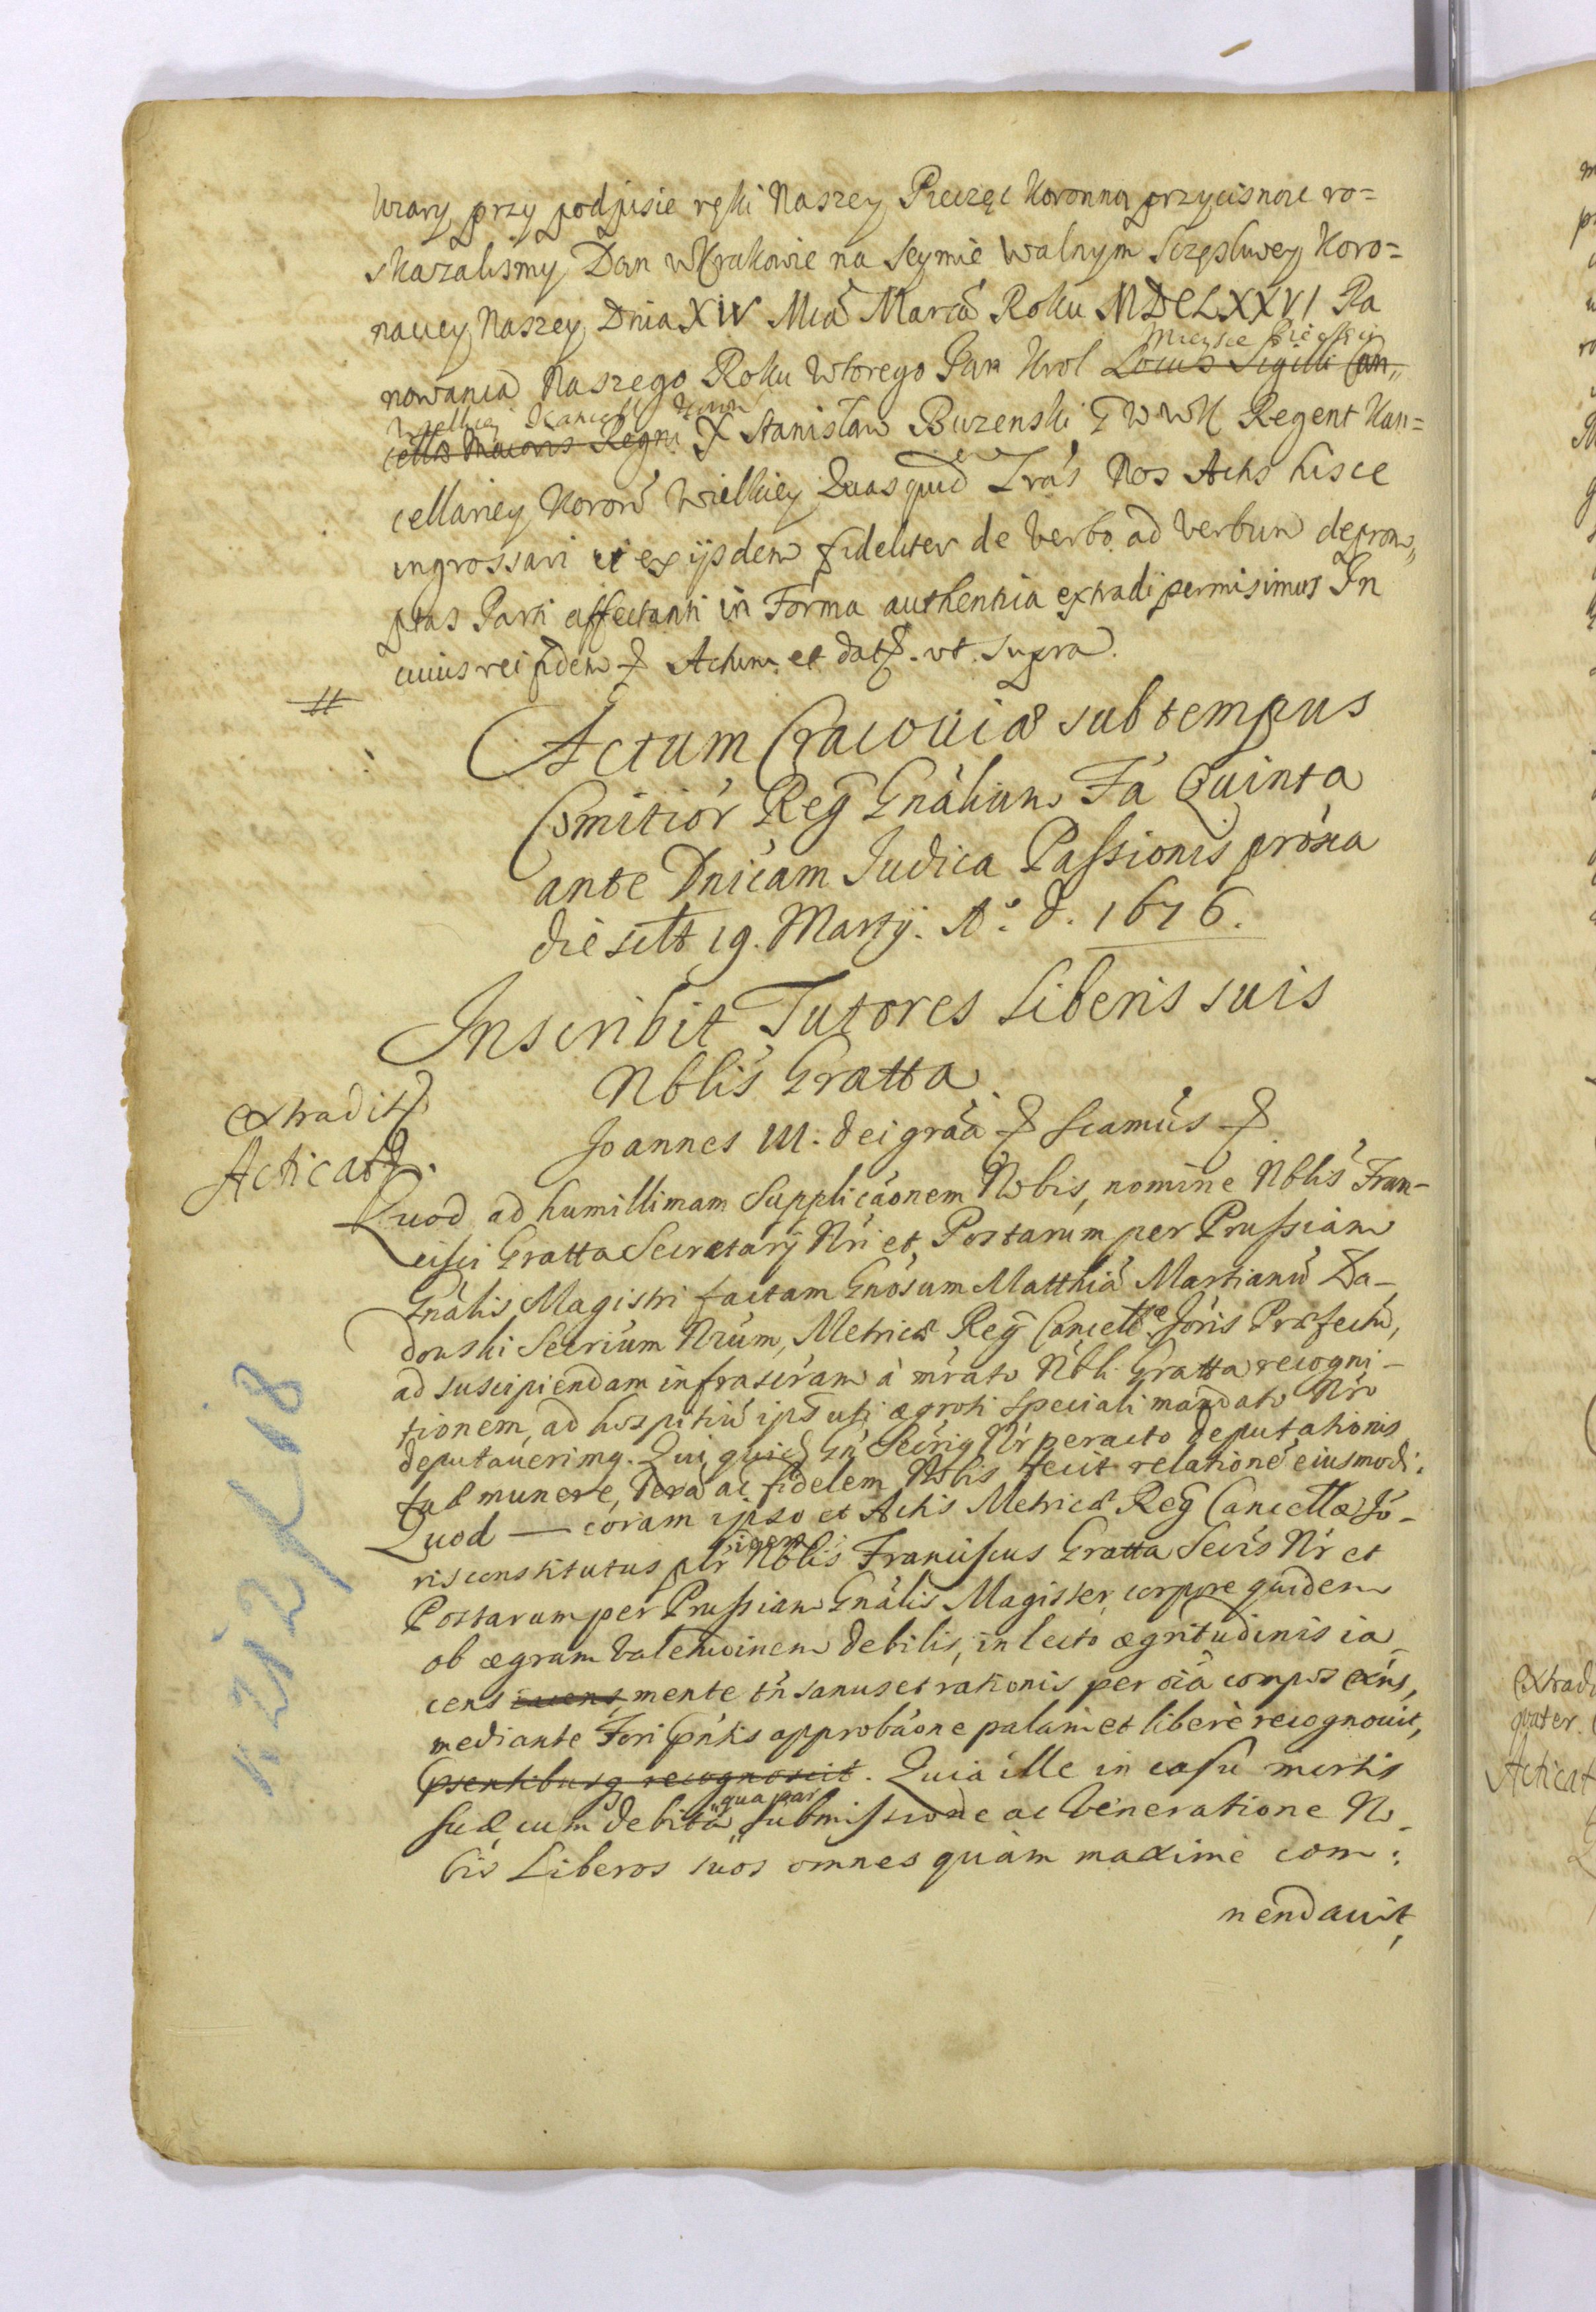 Wiary przy podpisie ręki Naszey Pieczęć Koronną przycisnąc ro=
skazalismy Dan w Krakowie na Seymie Walnym Sczęsluvey Koro=
naciey Naszey Dnia XIV Mcá Marcá Roku MDCLXXVI Pa
nowania Naszego Roku Wtorego Jan Krol Locus Sigilli Can„
Mieysce Pieczęci
Wielkiey Kancell Koron
cellæ Maioris Regni X Stanisław Buzenski G W W K Regent Kan=
cellariey Koroń Wielkiey Quasquid Lrás Nos Actis hisce
ingrossari et ex ijsdem fideliter de Verbo ad Verbum deprom„
ptas Parti affectanti in Forma authentica extradi permisimus In
cuius rei fidem & Actum et dat. ut supra.
#
Actum Cracoviæ sub tempus
Comitiór Reg Gnálium Fá Quinta
ante Dnícam Judica Passionis próxa
die scilt 19. Martij. A.° d. 1676.
Inscribit Tutores Liberis suis
Nblís Gratta
extradit
Acticat.
Joannes III. dei gráá & Scamús &
Quod ad humillimam Supplicáonem Nobis, nomine Nblís Fran-
cisci Gratta Secretarÿ Nri et Postarum per Prussiam
Gnális Magistri factam Gnósum Matthiá Martianú La-
donski Secriúm Nrúm, Metricæ Reg Cancellæ Jóris Præfectú,
ad suscipiendam infrascrám á mráto Nbli Gratta recogni-
tionem, ad hospitiú ipsiús ægroti speciali mandato Nró
deputauerimq. Qui quid Gń Secriq Nr peracto deputationis
suæ munere, verá ac fidelem Nobis fecit relationé eiusmodi.
Quod — coram ipso et Actis Metricæ Reg Cancellæ Jó-
ris constitutus plr idem Nblis Franciscus Gratta Secrís Nr et
Postarum per Prussiam Gnális Magister, corpore quidem
ob ægram valetudinem debilis, in lecto ægritudinis ia
cens iacens mente tń sanus et rationis per oiá compos exńs,
mediante Fori Pńtis approbáone palam et liberè recognouit,
Psentibusq recognoscit. Quia ille in casu mortis
suæ, cum debita „qua par„ submissione ac Veneratione No-
bis Liberos suos omnes quàm maximè com:
nendauit,